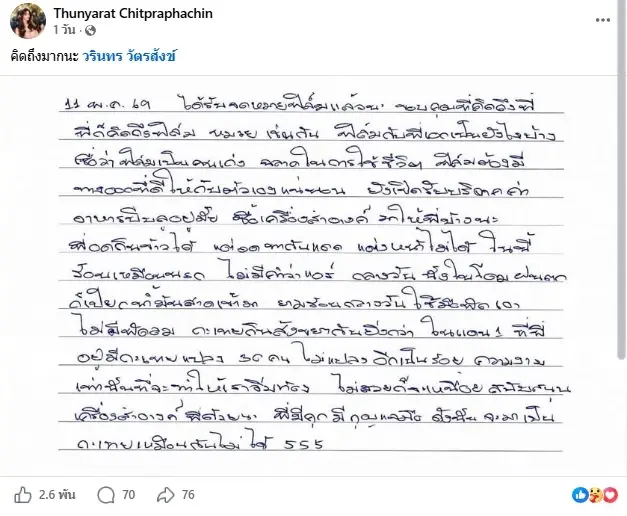 Thunyarat Chitpraphachin
1 วัน ·
คิดถึงมากนะ วรินทร วัตรสังข์
11 พ.ค. 69 ได้รับจดหมายฟิล์มแล้วนะ ขอบคุณที่คิดถึงพี่
พี่ก็คิดถึงฟิล์ม หมวย เช่นกัน ฟิล์มกับพี่เดเป็นยังไงบ้าง
เชื่อว่าฟิล์มเป็นคนเก่ง ฉลาดในการใช้ชีวิต ฟิล์มต้องมี
ทางออกที่ดีให้กับตัวเองแน่นอน ยังเปิดรับบริจาคค่า
อาหารปีบลอยู่มั้ย ซื้อเครื่องสำอางค์ มาให้พี่บ้างนะ
พี่อดกินข้าวได้ แต่อดทากันแดด แต่งหน้าไม่ได้ ในนี้
ร้อนเหมือนนรก ไม่มีคำว่าแอร์ กลางวัน นั่งในโดม ฝนตก
ก็เปียก น้ำมันสาดเข้ามา ยามร้อนกลางวัน ใช้มือพัดเอา
ไม่มีพัดลม กะเทยกินสังขยากันยิ่งกว่า ในแดน 1 ที่พี่
อยู่มีกะเทยแปลง 30 คน ไม่แปลงอีกเป็นร้อย ความงาม
เท่านั้นที่จะทำให้เราอิ่มท้อง ไม่สวยก็จะเหนื่อย สนับสนุน
เครื่องสำอางค์ พี่ด้วยนะ พี่มีคุก มี ดังนั้น จะมาเป็น
กะเทยเหมือนกันไม่ได้ 555
2.6 พัน 70 76